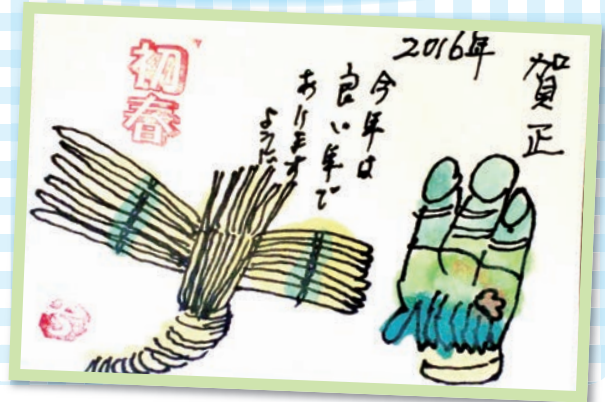 賀正
2016年
今年は
良い年で
あります
ように
初春